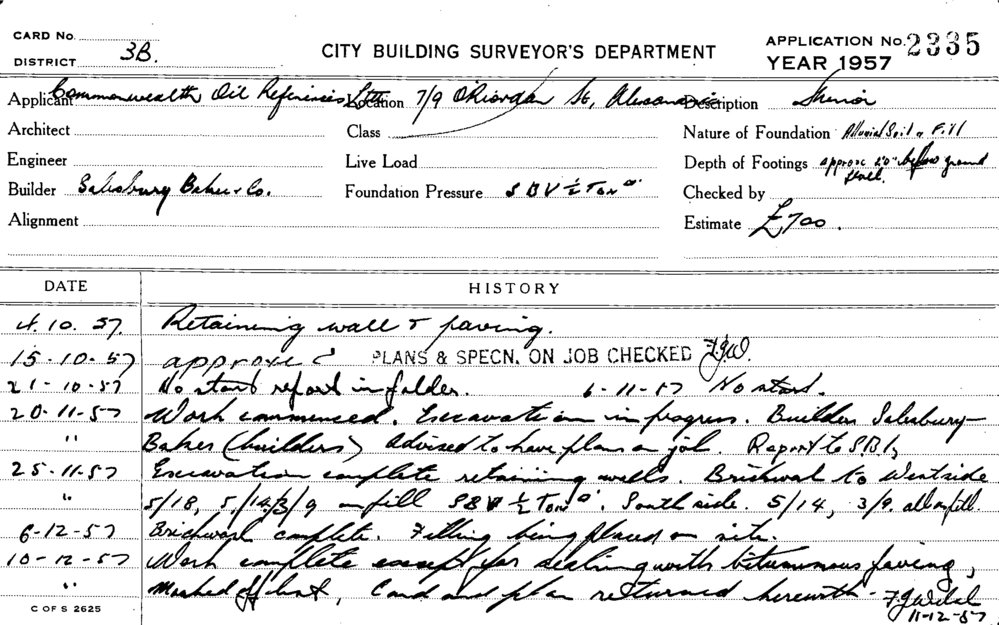 CARD No.
DISTRICT 3B.
CITY BUILDING SURVEYOR'S DEPARTMENT
APPLICATION No. 2335
YEAR 1957
Applicant Commonwealth Oil Refineries Ltd Location 7/9 O'Riordan St, Alexandria Description
Architect Class Nature of Foundation Alluvial Soil & Fill
Engineer Live Load Depth of Footings approx 2'0" below ground level.
Builder Salisbury Baker & Co. Foundation Pressure S B V ½ Ton □' Checked by
Alignment Estimate £700.
DATE HISTORY
4.10.57. Retaining wall & paving.
15-10-57 approved PLANS & SPECN. ON JOB CHECKED F.J.W.
21-10-57 No start report in folder. 6-11-57 No start.
20-11-57 Work commenced. Excavation in progress. Builders Salisbury-
" Baker (builders) advised to have plan on job. Report to S.B.I.
25-11-57 Excavation complete retaining walls. Brickwal to Westside
" 5/18, 5/14, 3/9 on fill SBV ½ Ton □'. South side. 5/14, 3/9 all on fill.
6-12-57 Brickwork complete. Filling being placed on site.
10-12-57 Work complete except for sealing with bitumunous paving,
" Marked off list, Card and plan returned herewith - F.J.
11-12-57
C OF S 2625